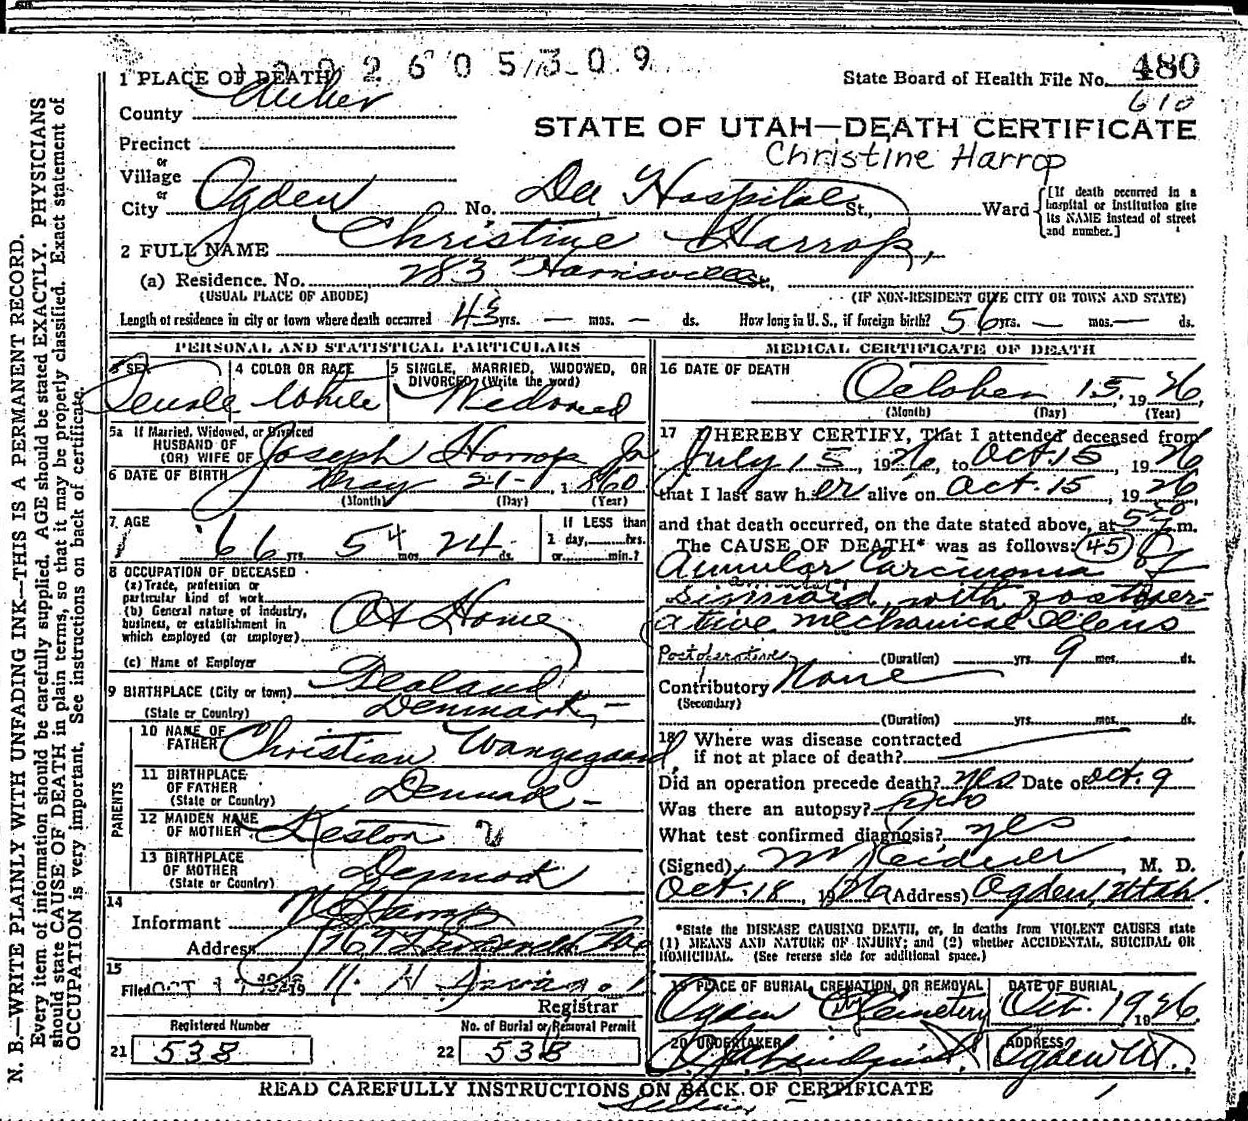 1 0 0 2 6 0 5 3 0 9
1 PLACE OF DEATH
State Board of Health File No. 480
610
County Weber
STATE OF UTAH—DEATH CERTIFICATE
Christine Harrop
Precinct
or
Village
or
City Ogden No. Dee Hospital St., Ward
[If death occurred in a hospital or institution give its NAME instead of street and number.]
2 FULL NAME Christine Harrop,
(a) Residence. No. 283 Harrisville St.,
(USUAL PLACE OF ABODE) (IF NON-RESIDENT GIVE CITY OR TOWN AND STATE)
Length of residence in city or town where death occurred 43 yrs. — mos. — ds. How long in U. S., if foreign birth? 56 yrs. — mos. — ds.
PERSONAL AND STATISTICAL PARTICULARS
3 SEX Female
4 COLOR OR RACE White
5 SINGLE, MARRIED, WIDOWED, OR DIVORCED (Write the word) Widowed
5a If Married, Widowed, or Divorced
HUSBAND OF
(OR) WIFE OF Joseph Harrop Jr
6 DATE OF BIRTH May 21 1860
(Month) (Day) (Year)
7 AGE 66 yrs. 4 mos. 24 ds.
If LESS than
1 day, hrs.
or min.?
8 OCCUPATION OF DECEASED
(a) Trade, profession or
particular kind of work
(b) General nature of industry,
business, or establishment in
which employed (or employer) At Home
(c) Name of Employer
9 BIRTHPLACE (City or town) Zealand
(State or Country) Denmark
PARENTS
10 NAME OF FATHER Christian Wangsgaard
11 BIRTHPLACE OF FATHER
(State or Country) Denmark
12 MAIDEN NAME OF MOTHER
13 BIRTHPLACE OF MOTHER
(State or Country) Denmark
14
Informant Harrop
Address
15
Filed OCT
Registrar
Registered Number
21 538
No. of Burial or Removal Permit
22 538
MEDICAL CERTIFICATE OF DEATH
16 DATE OF DEATH
October 15, 1926,
(Month) (Day) (Year)
17 I HEREBY CERTIFY, That I attended deceased from
July 15, 1926, to Oct 15, 1926
that I last saw her alive on Oct. 15, 1926
and that death occurred, on the date stated above, at m.
The CAUSE OF DEATH* was as follows: 45
Annular Carcinoma of
sigmoid, with postoper-
ative mechanical Illeus
Postoperative (Duration) yrs. 9 mos. ds.
Contributory None
(Secondary)
(Duration) yrs. mos. ds.
18 Where was disease contracted
if not at place of death?
Did an operation precede death? yes Date of Oct. 9
Was there an autopsy? No
What test confirmed diagnosis? yes
(Signed) M. D.
Oct. 18, 1926 (Address) Ogden, Utah.
*State the DISEASE CAUSING DEATH, or, in deaths from VIOLENT CAUSES state
(1) MEANS AND NATURE OF INJURY; and (2) whether ACCIDENTAL, SUICIDAL OR
HOMICIDAL. (See reverse side for additional space.)
19 PLACE OF BURIAL, CREMATION, OR REMOVAL
Ogden City Cemetery
DATE OF BURIAL
Oct. 19 1926.
20 UNDERTAKER
ADDRESS
Ogden Ut.
READ CAREFULLY INSTRUCTIONS ON BACK OF CERTIFICATE
N. B.—WRITE PLAINLY WITH UNFADING INK—THIS IS A PERMANENT RECORD.
Every item of information should be carefully supplied. AGE should be stated EXACTLY. PHYSICIANS
should state CAUSE OF DEATH in plain terms, so that it may be properly classified. Exact statement of
OCCUPATION is very important. See instructions on back of certificate.